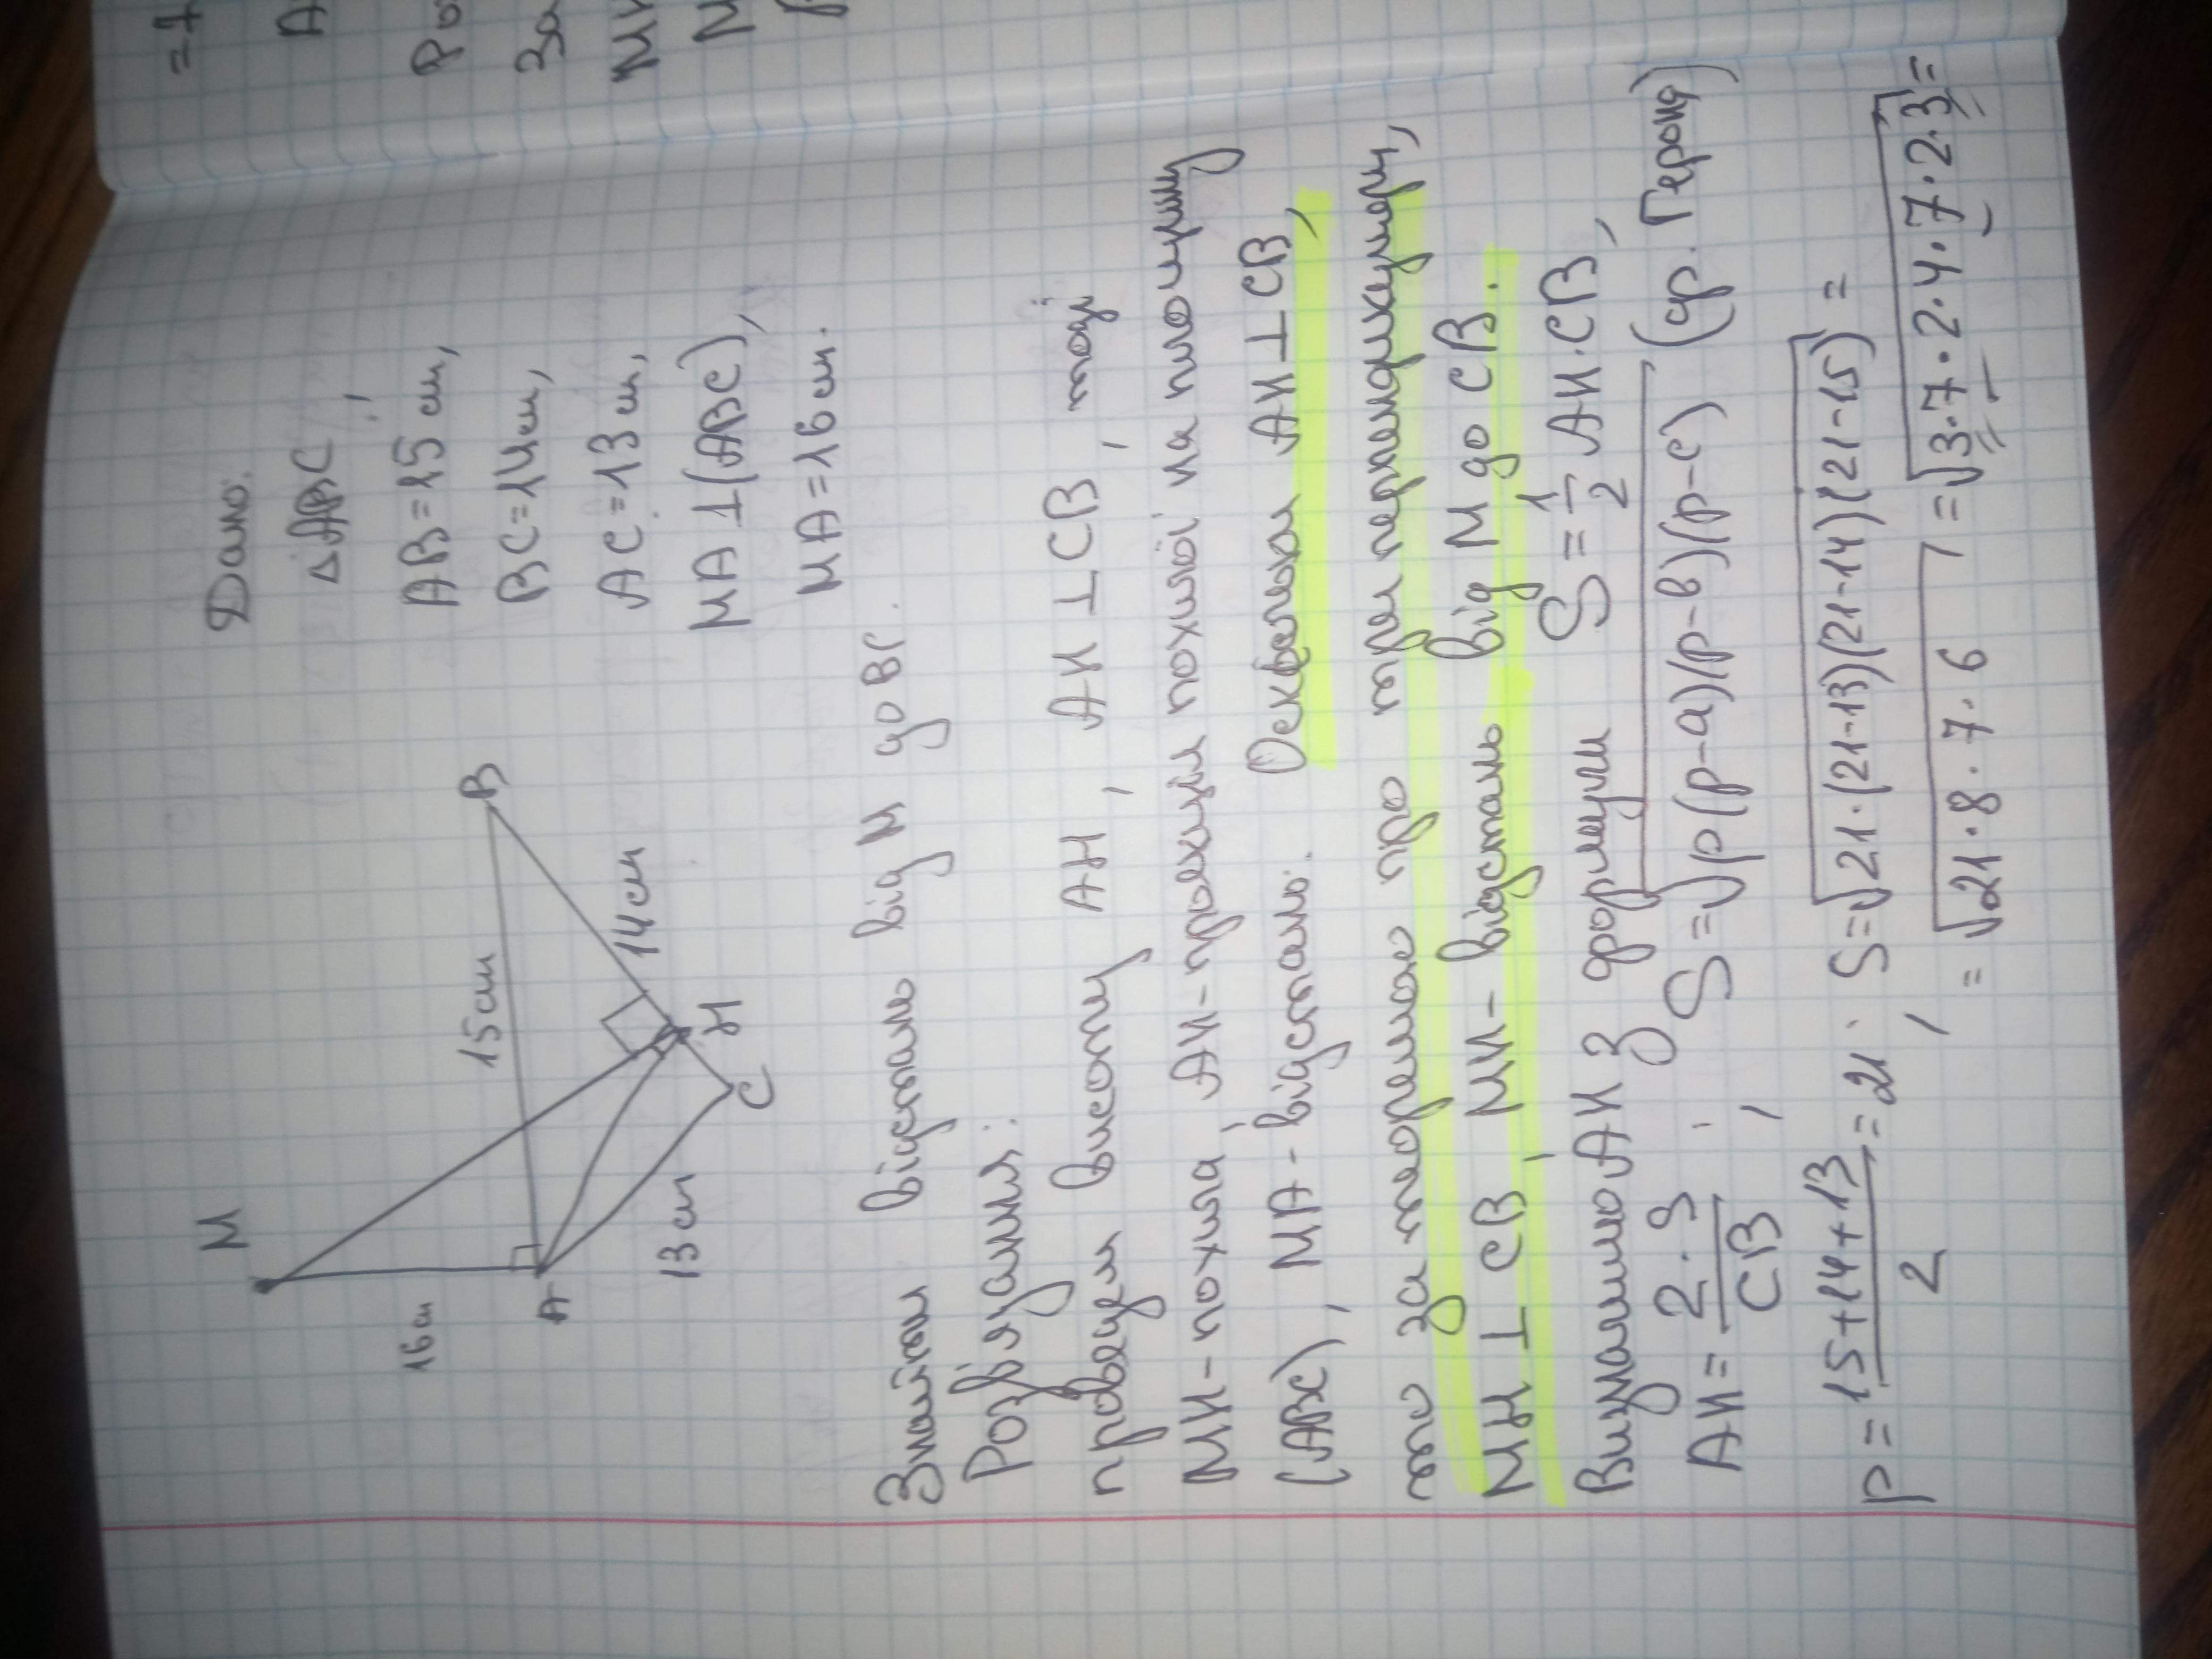 = 7
А
Ро
За
МН
М
Дано:
△ABC,
AB=15 см,
BC=14 см,
AC=13 см,
MA⊥(ABC),
MA=16 см.
M
16 см
A
15 см
B
14 см
H
C
13 см
Знайти відстань від M до BC.
Розв'язання:
проведем висоту AH, AH⊥CB, тоді
MH-похила, AH-проекція похилої на площину
(ABC), MA-відстань. Оскільки AH⊥CB,
то за теоремою про три перпендикуляри,
MH⊥CB, MH-відстань від M до CB.
Визначимо AH з формули S=1/2 AH·CB,
AH=2·S/CB; S=√p(p-a)(p-b)(p-c) (ф. Герона)
p=15+14+13/2=21. S=√21·(21-13)(21-14)(21-15) =
= √21·8·7·6 = √3·7·2·4·7·2·3=